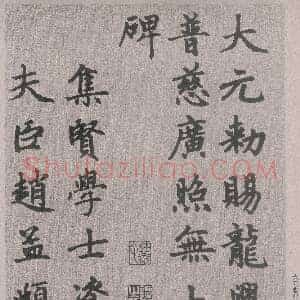 大元勅賜龍興
普慈廣照無上
碑
集賢學士資
夫臣趙孟頫
Shufaziliao.COM